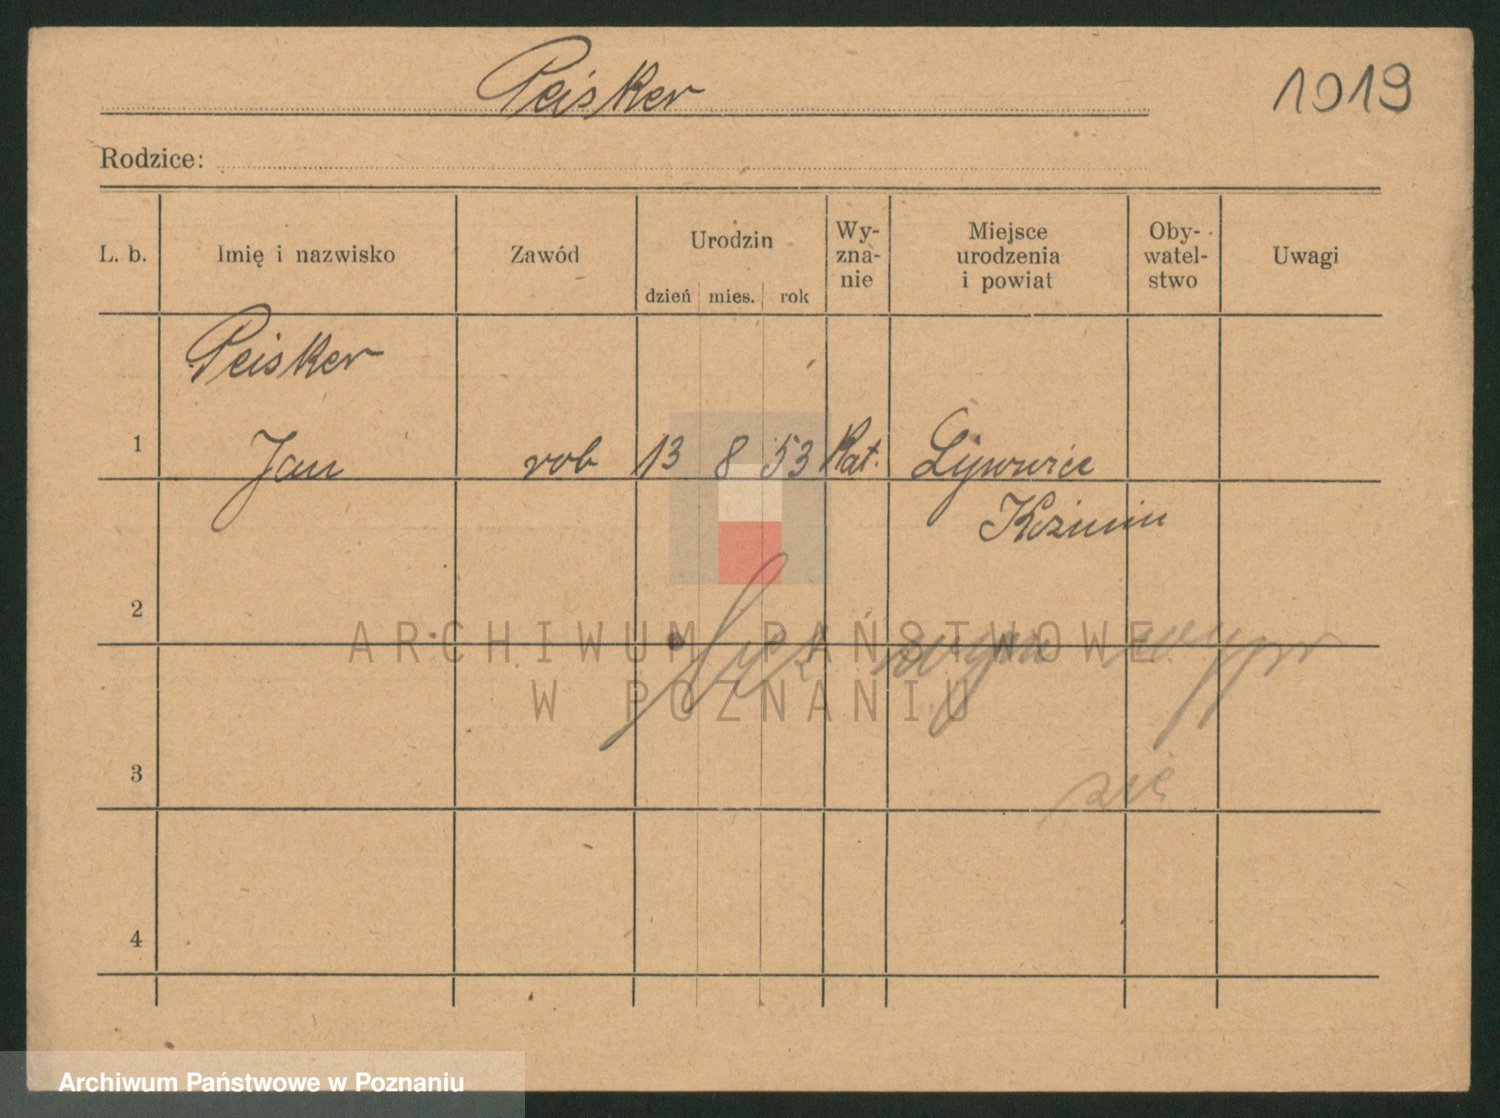 Peisker
1919
Rodzice:
L. b. Imię i nazwisko Zawód Urodzin dzień mies. rok Wy-zna-nie Miejsce urodzenia i powiat Oby-watel-stwo Uwagi
Peisker
1 Jan rob 13 8 53 Kat.
Koźmin
2
ARCHIWUM PAŃSTWOWE
W POZNANIU
się
3
4
Archiwum Państwowe w Poznaniu